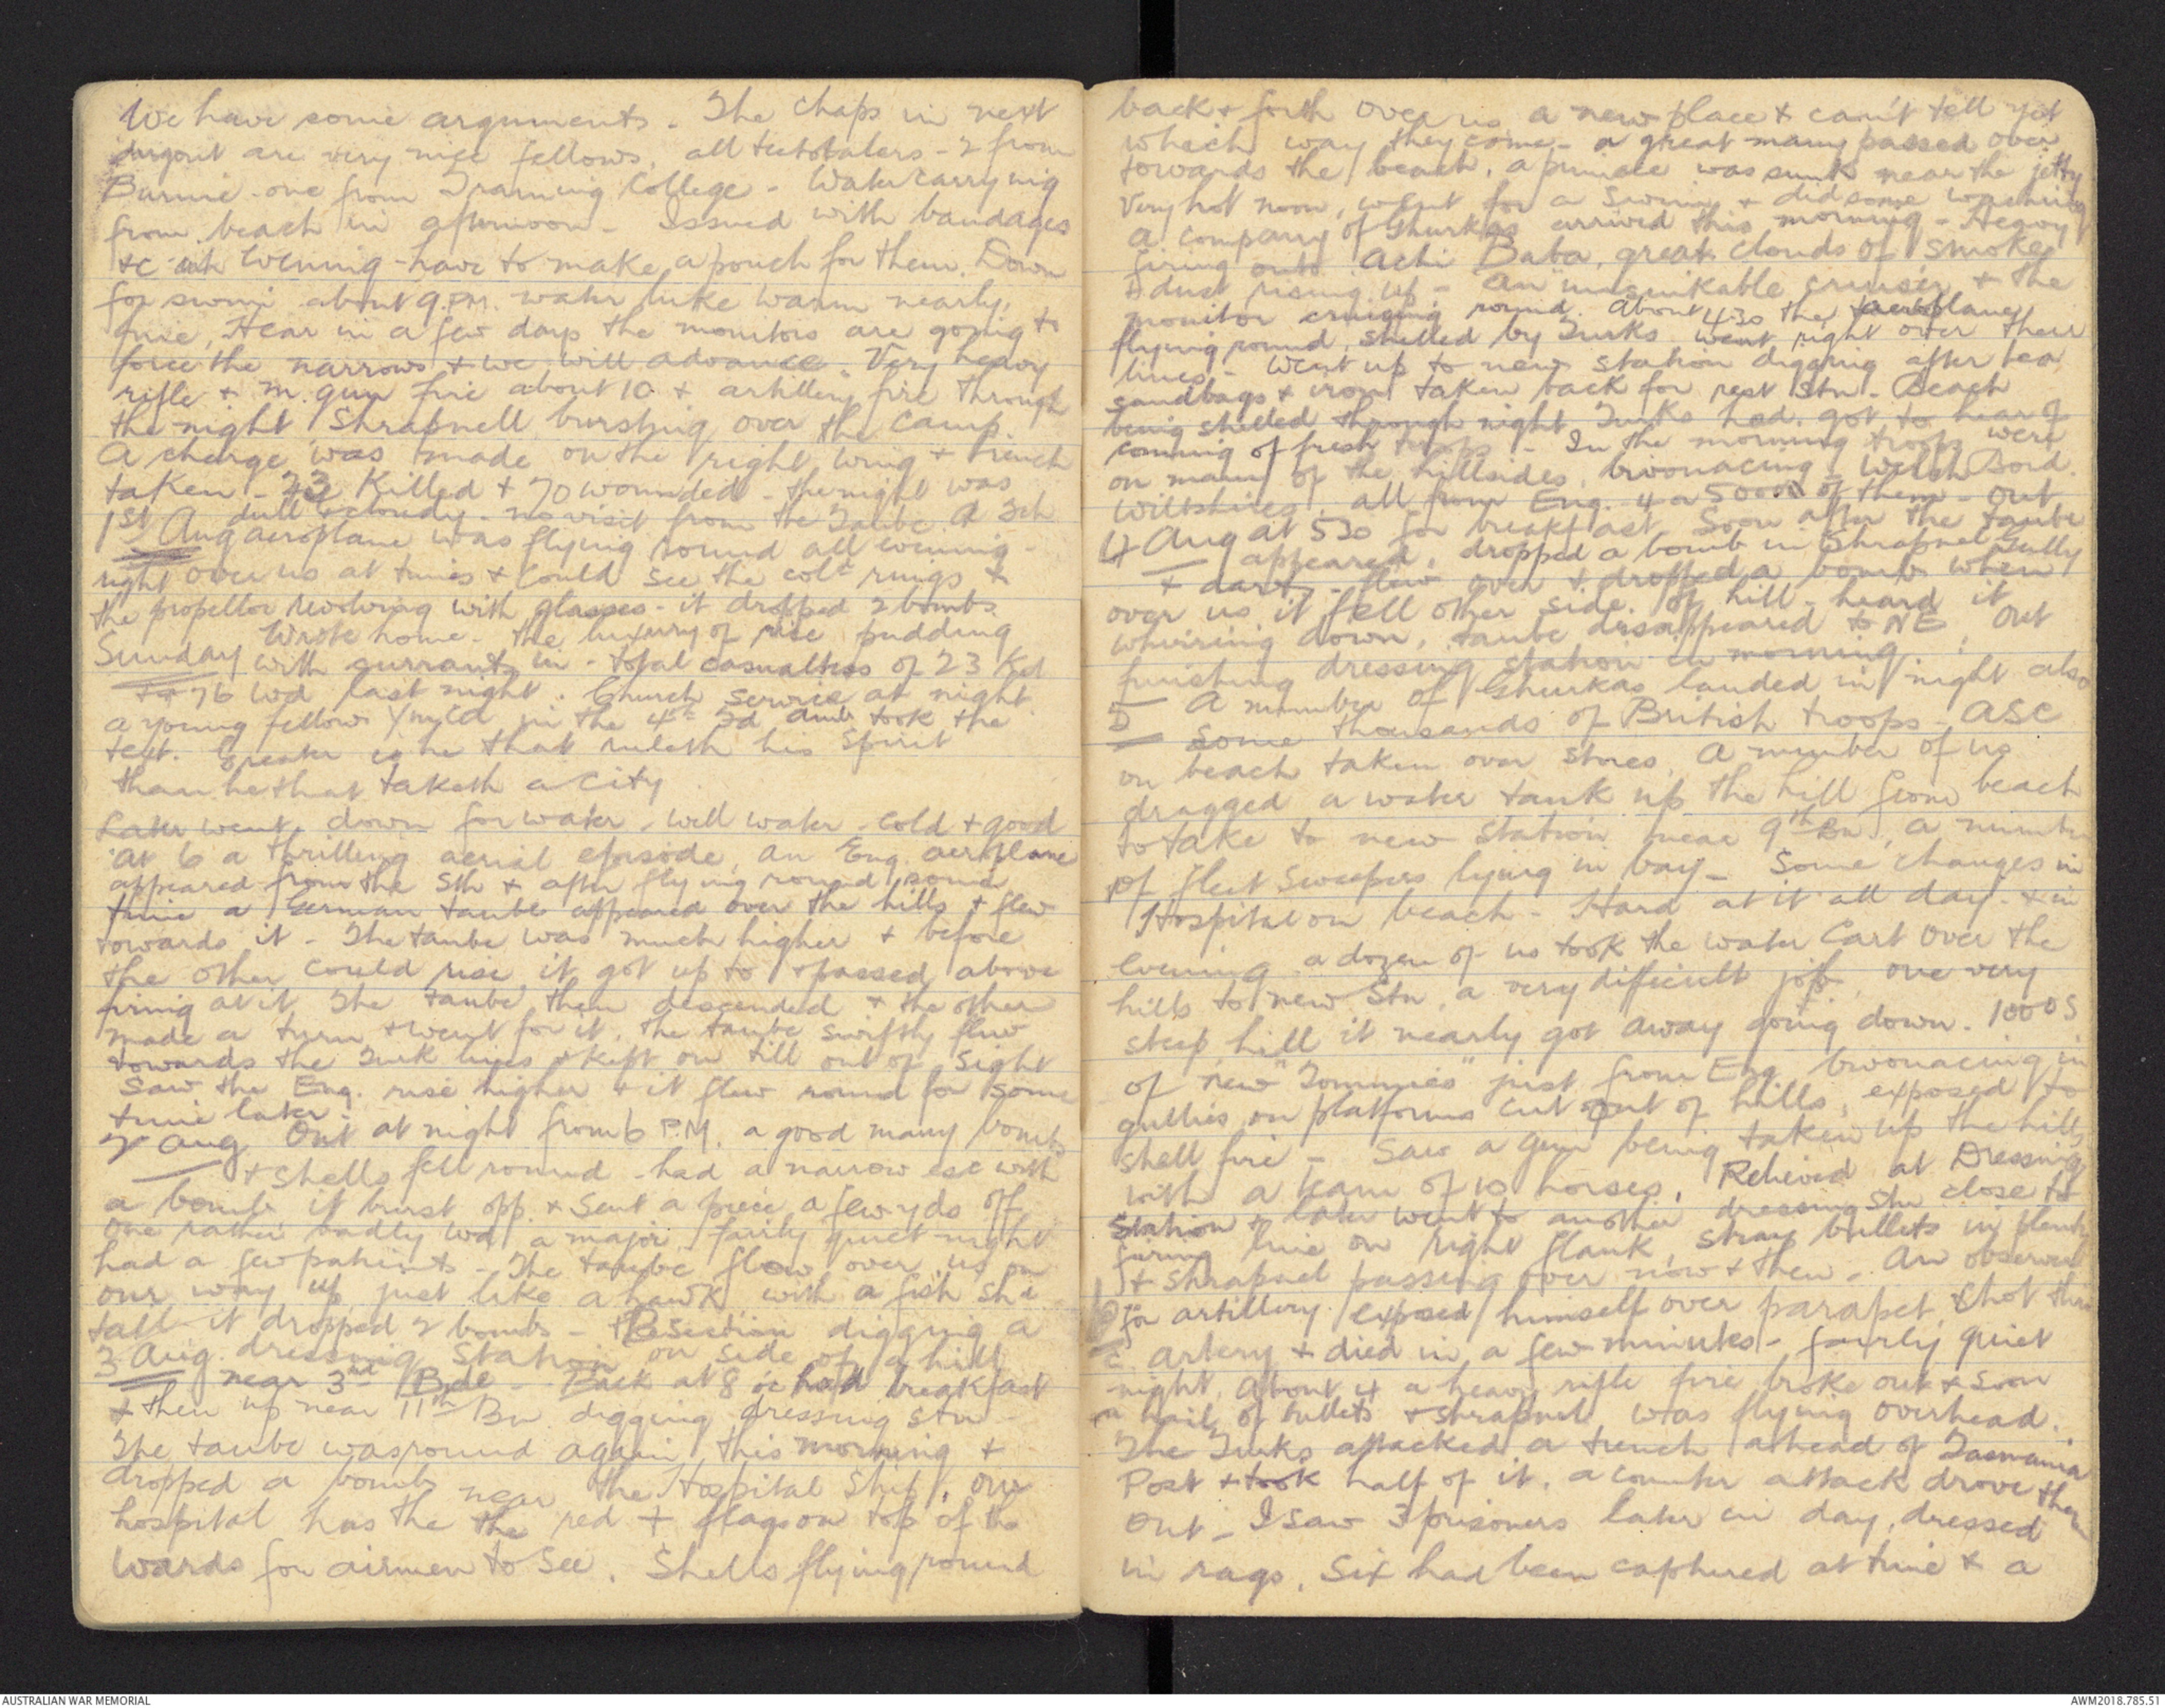 We have some arguments - The chaps in next
dugout are very nice fellows, all teetotalers - 2 from
Burnie - one from Training College - Water carrying
from beach in afternoon - Issued with bandages
+c evening - have to make a pouch for them. Down
for swim about 9.PM. water luke warm nearly,
fine, Hear in a few days the monitors are going to
force the narrows + we will advance. Very heavy
rifle + m. gun fire about 10 + artillery fire through
the night Shrapnell bursting over the camp.
A charge was made on the right wing + trench
taken - 23 Killed + 70 wounded - the night was
dull & cloudy - no visit from the Taube A
1st Aug aeroplane was flying round all evening -
right over us at times + could see the cold rings +
the propellor revolving with glasses - it dropped 2 bombs.
Wrote home - the luxury of rise pudding
Sunday with currants in - total casualties of 23 Kd
76 wd last night. Church service at night
a young fellow YMCA in the 4th Fd Amb took the
text. Greater is he that ruleth his spirit
than he that taketh a city
Later went down for water - well water - cold + good
at 6 a thrilling aerial episode, an Eng. aeroplane
appeared from the Sth + after flying round some
time a German taube appeared over the hills + flew
towards it - The taube was much higher + before
the other could rise it got up to + passed above
firing at it The taube then descended + the other
made a turn + went for it, the taube swiftly flew
towards the Turk lines + kept on till out of sight
Saw the Eng. rise higher + it flew round for some
time later -
2 Aug Out at night from 6 P.M. a good many bombs
+ shells fell round - had a narrow esc with
a bomb it burst opp. + sent a piece a few yds off
one rather badly wd a major fairly quiet night
had a few patients - The taube flew over us on
our way up just like a hawk with a fish shd
tail it dropped 2 bombs - B Section digging a
3 Aug. dressing station on side of a hill
near 3rd Bde - Back at 8 oc had breakfast
+ then up near 11th Bn digging dressing stn -
The taube was round again this morning +
dropped a bomb near the Hospital Ship, our
hospital has the the red + flags on top of the
wards for airmen to see. Shells flying round
back + forth over us a new place + can't tell yet
which way they come - a great many passed over
towards the beach, a pinnace was sunk near the jetty
Very hot noon, went for a swim + did some washing
A company of Ghurkas arrived this morning - Heavy
firing onto Achi Baba, great clouds of smoke
+ dust rising up - An "unsinkable cruiser + the
monitor cruising round. About 4.30 the aeroplane
flying round, shelled by Turks, went right over their
lines - Went up to new station digging after tea
sandbags + iron taken back for rest stn - Beach
being shelled through night Turks had got to hear of
coming of fresh troops - In the morning troops were
on many of the hillsides, bivouacing - Welsh Bord.
Wiltshires, all from Eng. 4 or 5000 of them - out
4 Aug at 530 for breakfast. Soon after the taube
appeared, dropped a bomb in Shrapnel Gully
+ darts - flew over + dropped a bomb when
over us it fell other side of hill - heard it
whirring down, taube disappeared to NE. Out
finishing dressing station in morning.
5 A number of Ghurkas landed in night also
some thousands of British troops - ASC
on beach taken over stores. A number of us
dragged a water tank up the hill from beach
to take to new station near 9th Bn, a number
of fleet sweepers lying in bay - Some changes in
Hospital on beach - Hard at it all day - + in
evening a dozen of us took the water cart over the
hills to new Stn, a very difficult job, one very
steep hill it nearly got away going down. 1000s
of new "Tommies" just from Eng bivouacing in
gullies on platforms cut out of hills, exposed to
shell fire - Saw a gun being taken up the hills
with a team of 10 horses. Relieved at Dressing
Station + later went to another dressing stn close to
firing line on right flank, stray bullets in plenty
+ shrapnel passing over now + then - An observer
for artillery exposed himself over parapet, shot thro
artery + died in a few minutes - fairly quiet
night. About 4 a heavy rifle fire broke out + soon
a hail of bullets + shrapnel was flying overhead.
The Turks attacked a trench ahead of Tasmania
Post + took half of it, a counter attack drove them
out - I saw 3 prisoners later in day, dressed
in rags. Six had been captured at time + a
AUSTRALIAN WAR MEMORIAL
AWM2018.785.51